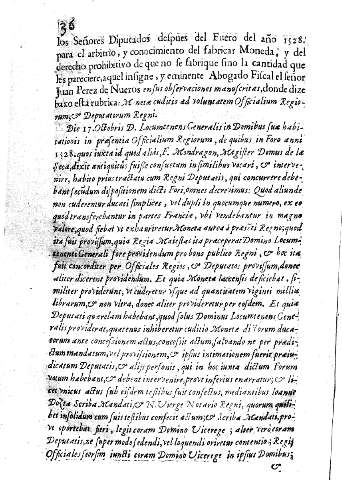 36
los Señores Diputados despues del Fuero del año 1528.
para el arbitrio, y conocimiento del fabricar Moneda, y del
derecho prohibitivo de que no se fabrique sino la cantidad que
les pareciere, aquel insigne, y eminente Abogado Fiscal el señor
Juan Perez de Nueros en sus observaciones manuscritas, donde dize
baxo esta rubrica: Monetæ cuditio ad voluntatem Officialium Regio-
rum, & Deputatorum Regni.
Die 17. Octobris D. Locumtenens Generalis in Domibus suæ habi-
tationis in præsentia Officialium Regiorum, de quibus in Foro anni
1528. quos iuxta id quod alibi, F. Mondragon, Magister Domus de la
Seca, dixit antiquitùs fuisse consuetum in similibus vocari, & interve-
nire, habito prius tractatu cum Regni Deputatis, qui concurrere debe-
bant secundum dispositionem dicti Fori, omnes decrevimus: Quod aliunde
non cuderentur ducati simplices, vel dupli in quocumque numero, ex eo
quod transferebantur in partes Franciæ, vbi vendebantur in magno
valore, quod siebat vt exhauriretur Moneta aurea à præsiti Regno; quod
ita fuit provissum, quia Regia Maiestas ita præceperat Domino Locum-
tenenti Generali fore providendum pro bono publico Regni, & hoc ita
fuit concorditer per Officiales Regios, & Deputatos provissum, donec
aliter diceront providendum. Et quia Moneta Iaccensis deficiebat, si-
militer providerunt, vt cuderetur vsque ad quantitatem viginti millia
librarum, & non vltra, donec aliter provideretur per eosdem. Et quia
Deputati querelam habebant, quod solus Dominus Locumtenens Gene-
ralis providerat, quatenus inhiberetur cuditio Monetæ di Torum duca-
torum ante concessionem actus, concessit actum, salvando ne per præ-
dictum mandatum, vel provissionem, & ipsius intimationem fuerit præiu-
dicatum Deputatis, & alijs personis, qui in hoc iuxta dictum Forum
votum habebant, & debent intervenire, prout inferius enarratur; & li-
cet vnicus actus sub eisdem testibus fuit confectus, mediantibus Ioanne
Scriba Mandati, & N. Vierge Notario Regni, quorum quili-
bet insolidum cum suis testibus confecit actum; & Scriba Mandati, pro-
vt oportebat fieri, legit coram Domino Vicerege; aliter verò coram
Deputatis, ex super modo sedendi, vel loquendi oriretur contentio; Regij
Officiales seorsim iuncti coram Domino Vicerege in ipsius Domibus;
&